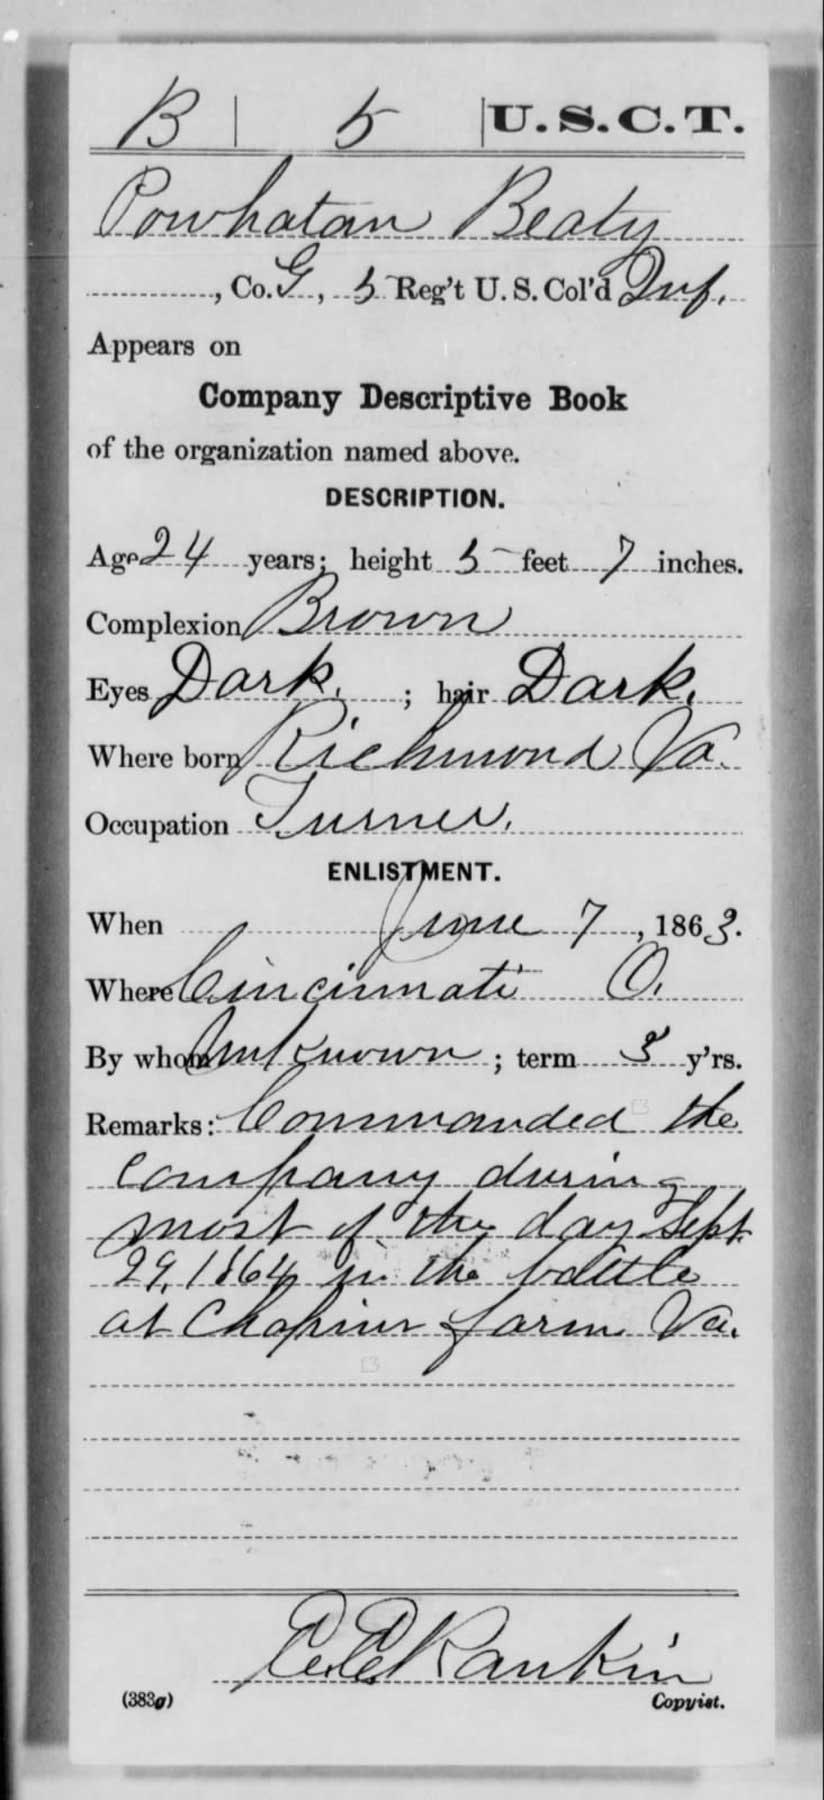 B | 5 | U.S.C.T.
Powhatan Beaty
, Co. G, 5 Reg't U. S. Col'd Inf.
Appears on
Company Descriptive Book
of the organization named above.
DESCRIPTION.
Age 24 years; height 5 feet 7 inches.
Complexion Brown
Eyes Dark. ; hair Dark.
Where born Richmond Va.
Occupation Turner.
ENLISTMENT.
When June 7, 1863.
Where Cincinnati O.
By whom Unknown; term 3 y'rs.
Remarks: Commanded the
company during
most of the day Sept.
29, 1864 in the battle
at Chapins farm Va.
Rankin
(383g) Copyist.